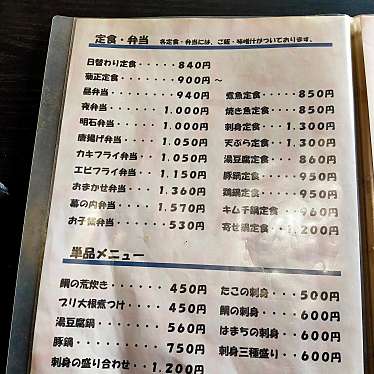 定食・弁当 各定食・弁当には、ご飯・味噌汁がついております。
日替わり定食・・・・・840円
菊正定食・・・・・・・900円～
昼弁当・・・・・・・・940円
夜弁当・・・・・・・1.000円
明石弁当・・・・・・1.000円
唐揚げ弁当・・・・・1.050円
カキフライ弁当・・・1.050円
エビフライ弁当・・・1.150円
おまかせ弁当・・・・1.360円
幕の内弁当・・・・・1.570円
お子様弁当・・・・・・530円
煮魚定食・・・・850円
焼き魚定食・・・850円
刺身定食・・・1.300円
天ぷら定食・・1.300円
湯豆腐定食・・・860円
豚鍋定食・・・・950円
鶏鍋定食・・・・950円
キムチ鍋定食・・960円
寄せ鍋定食・・1.200円
単品メニュー
鯛の荒炊き・・・・450円
ブリ大根煮つけ・・450円
湯豆腐鍋・・・・・560円
豚鍋・・・・・・・750円
刺身の盛り合わせ・・1.200円
たこの刺身・・・500円
鯛の刺身・・・・600円
はまちの刺身・・600円
刺身三種盛り・・600円